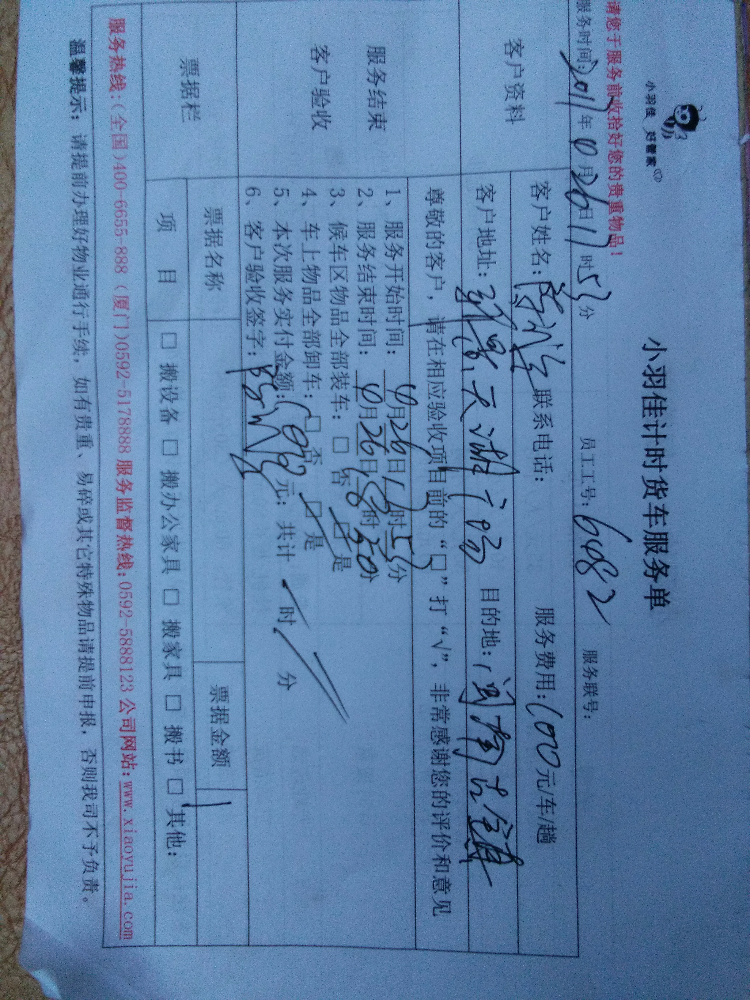 小羽佳 好管家
小羽佳计时货车服务单
请您于服务前收拾好您的贵重物品！
服务时间：2017年 月26日17时53分 员工工号：6482 服务联号：
客户资料
客户姓名： 联系电话： 服务费用：100元/车/趟
客户地址： 天湖 目的地：闽南古镇
尊敬的客户，请在相应验收项目前的“□”打“√”，非常感谢您的评价和意见
服务结束
客户验收
1、服务开始时间： 月26日17时53分
2、服务结束时间： 月26日18时50分
3、候车区物品全部装车：□ 否 □ 是
4、车上物品全部卸车：□ 否 □ 是
5、本次服务实付金额：100元；共计 时 分
6、客户验收签字：
票据栏
票据名称 票据金额
项 目 □ 搬设备 □ 搬办公家具 □ 搬家具 □ 搬书 □ 其他：
服务热线：（全国）400-6655-888（厦门）0592-5178888 服务监督热线：0592-5888123 公司网站：www.xiaoyujia.com
温馨提示：请提前办理好物业通行手续，如有贵重、易碎或其它特殊物品请提前申报，否则我司不予负责。